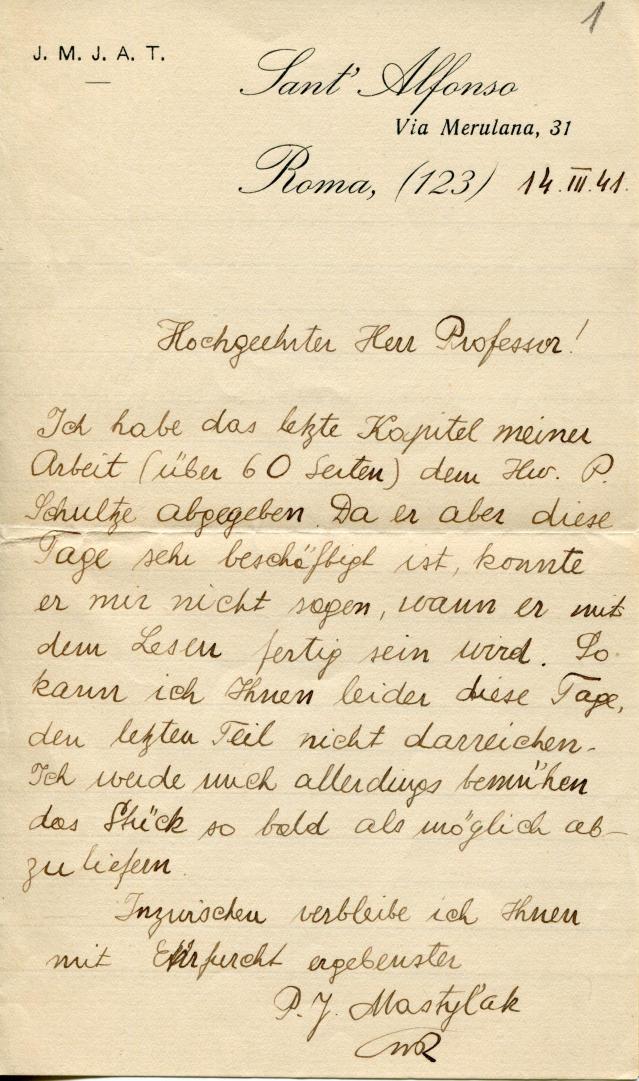 1
J. M. J. A. T.
Sant' Alfonso
Via Merulana, 31
Roma, (123) 14.III.41.
Hochgeehrter Herr Professor!
Ich habe das letzte Kapitel meiner
Arbeit (über 60 Seiten) dem Hw. P.
Schultze abgegeben. Da er aber diese
Tage sehr beschäftigt ist, konnte
er mir nicht sagen, wann er mit
dem Lesen fertig sein wird. So
kann ich Ihnen leider diese Tage,
den letzten Teil nicht darreichen.
Ich werde mich allerdings bemühen
das Stück so bald als möglich ab-
zuliefern.
Inzwischen verbleibe ich Ihnen
mit Ehrfurcht ergebenster
P. J. Mastyl'ak